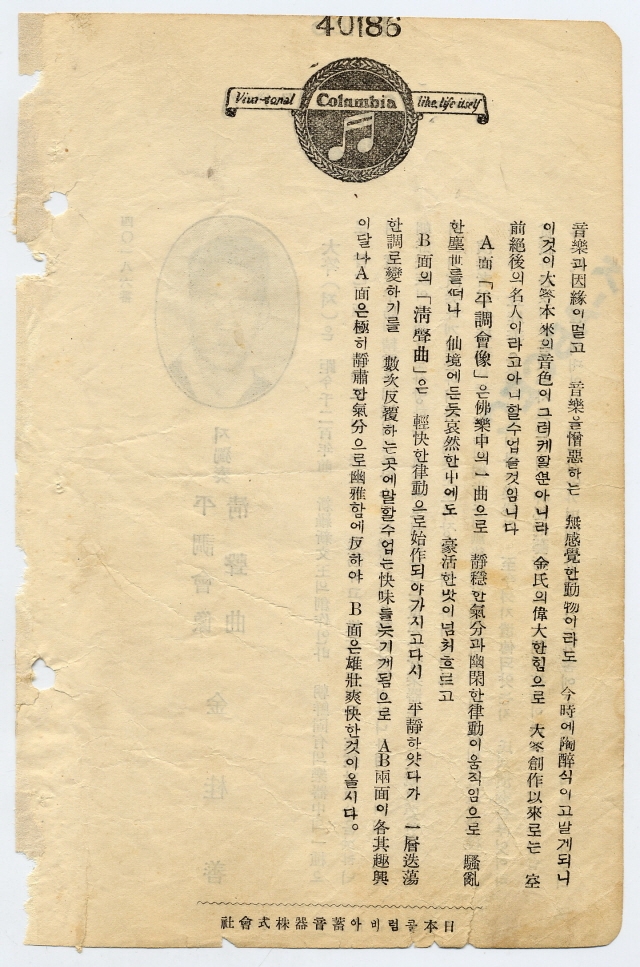 40186
Viva-tonal Columbia like life itself
音樂과因緣이멀고 音樂을憎惡하는 無感覺한動物이라도 今時에陶醉식이고말게되니
이것이大笒本來의音色이그러케할뿐아니라 金氏의偉大한힘으로 大笒創作以來로는 空
前絕後의名人이라고아니할수업슬것임니다
A面「平調會像」은佛樂中의一曲으로 靜穩한氣分과幽閑한律動이움직임으로 騷亂
한塵世를떠나 仙境에든듯哀然한中에도 豪活한맛이넘처흐르고
B面의「淸聲曲」은 輕快한律動으로始作되야가지고다시 平靜하얏다가 一層迭蕩
한調로變하기를 數次反覆하는곳에말할수업는快味를늣기게됨으로 AB兩面이各其趣興
이달나A面은極히靜肅한氣分으로幽雅함에反하야 B面은雄壯爽快한것이올시다。
日本콜럼비아蓄音器株式會社